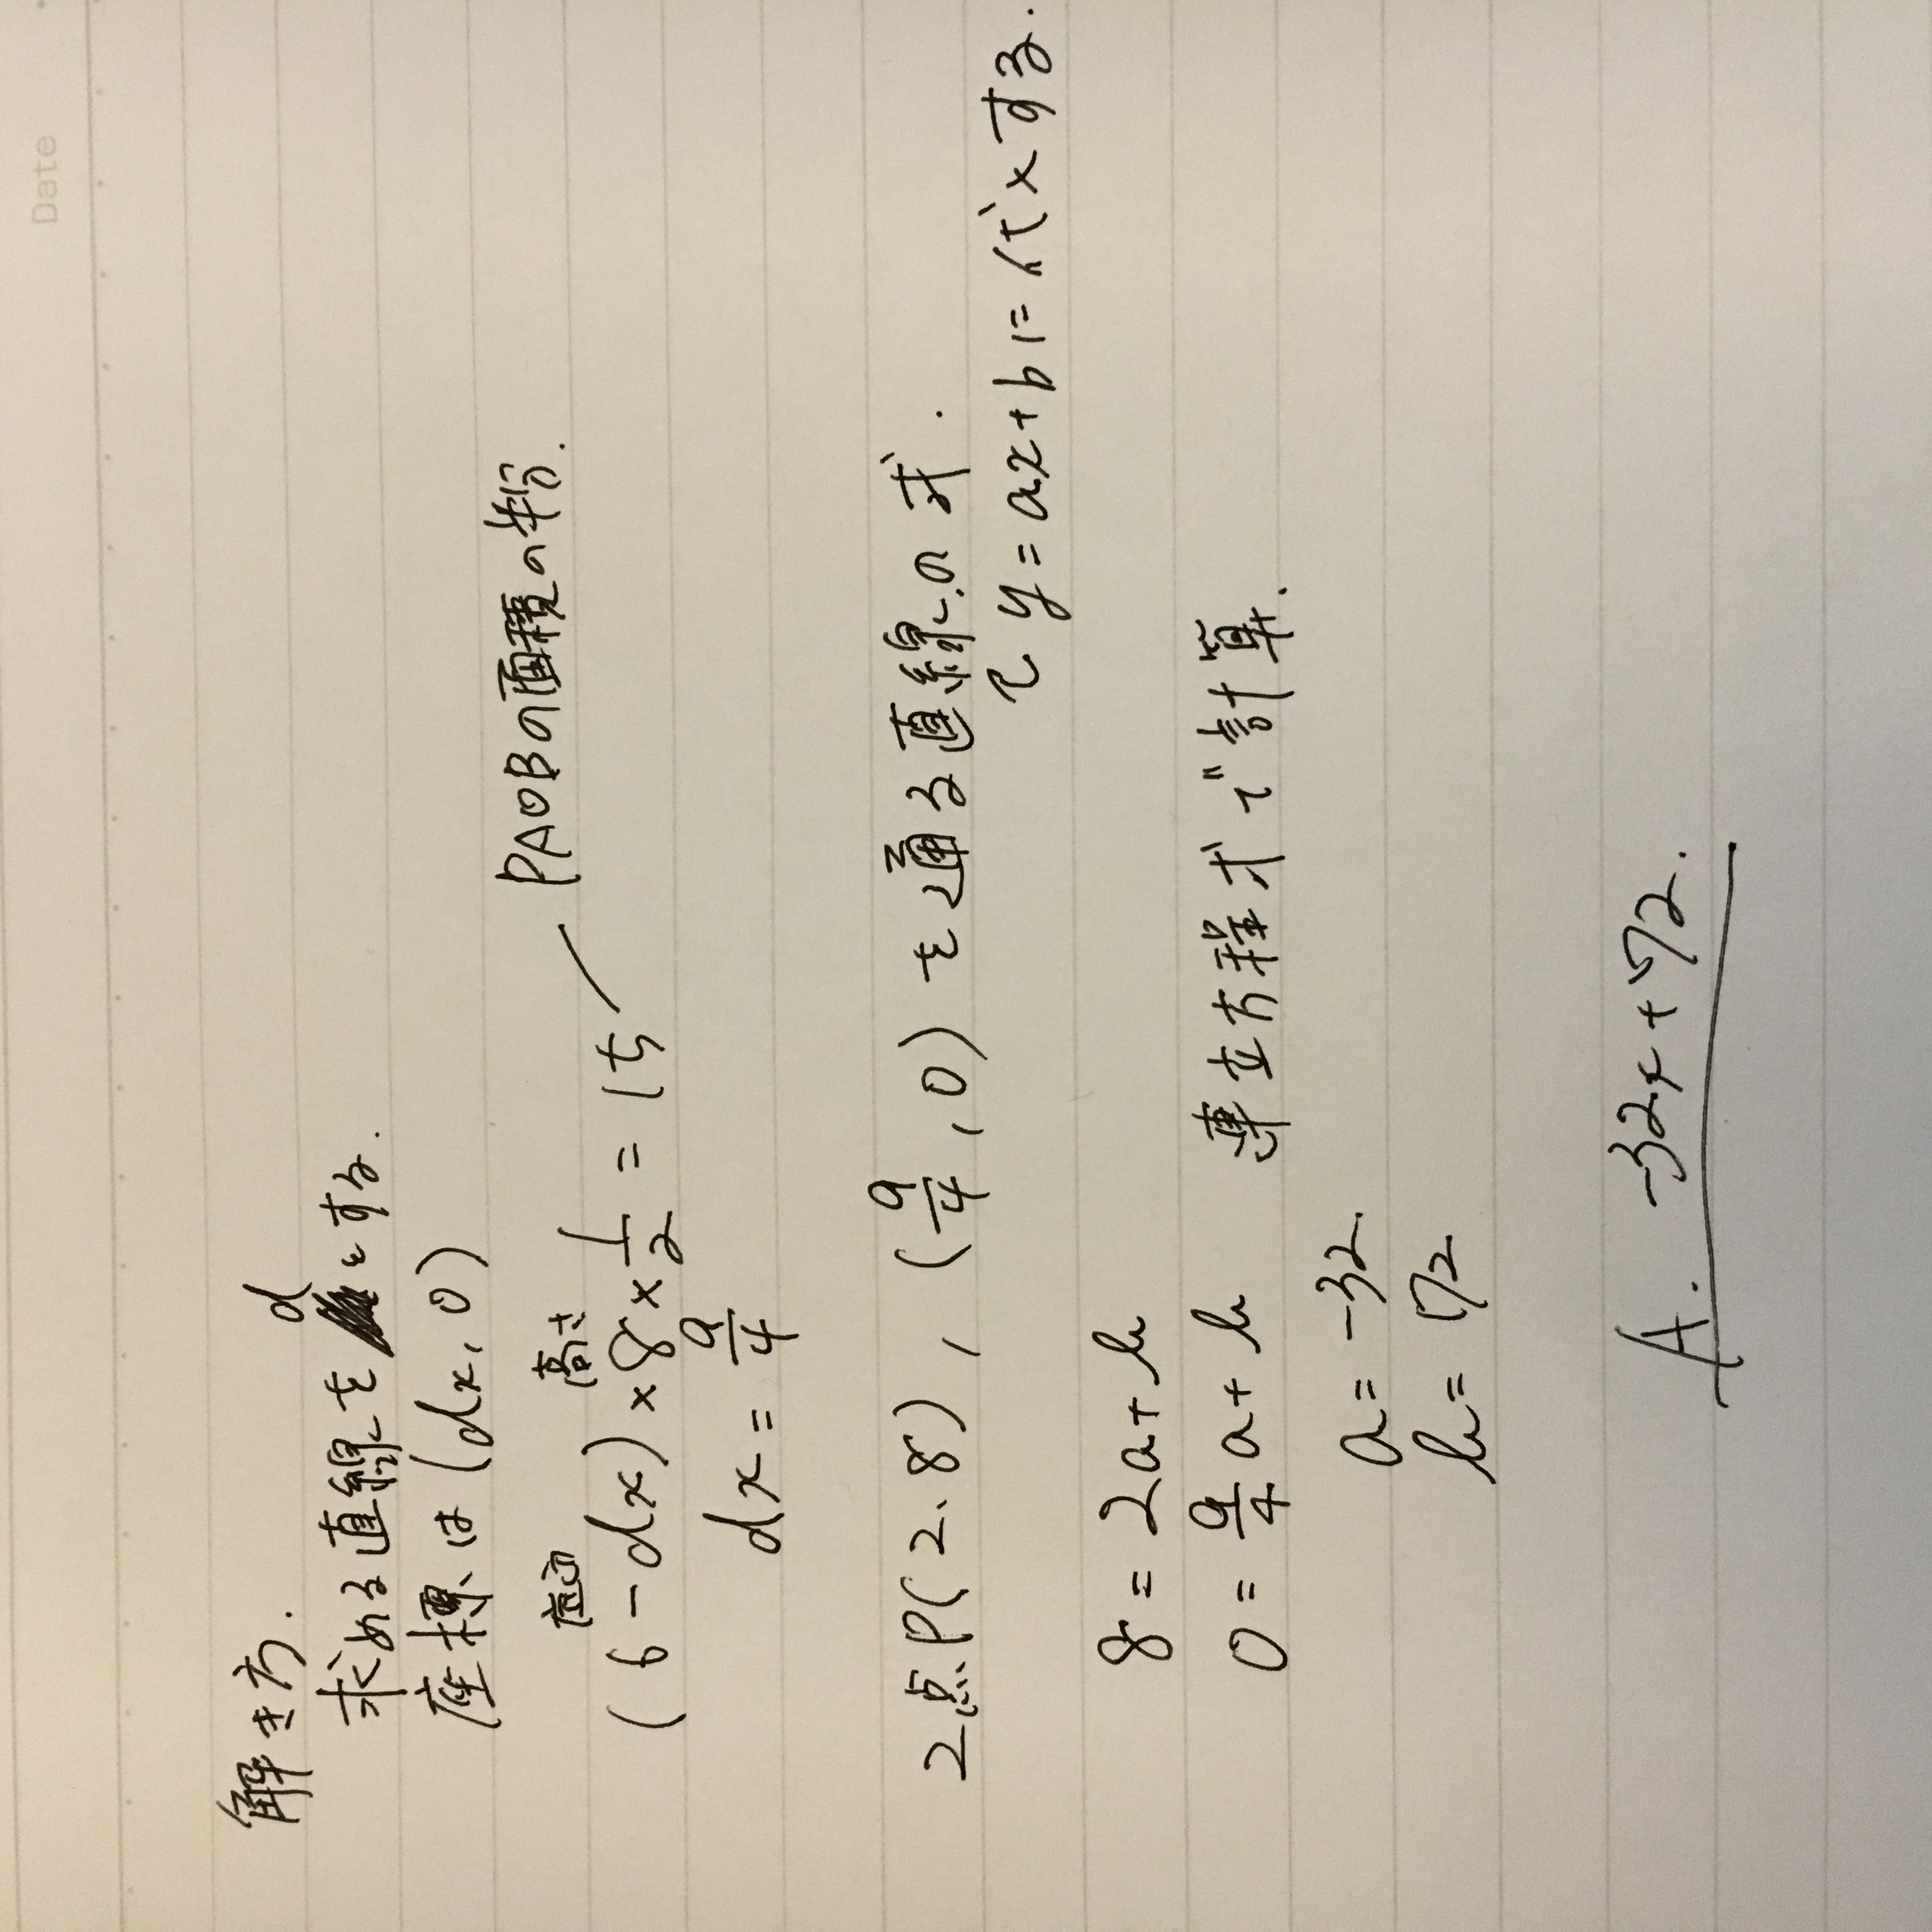 Date
解き方.
求める直線をdとする.
座標は(dx, 0)
底辺 高さ
(6-dx)×8×1/2=15 PAOBの面積の半分.
dx=9/4
2点P(2.8), (9/4, 0)を通る直線の式.
て y=ax+bに代入する.
8=2a+b
0=9/4a+b 連立方程式で計算.
a=-32
b=72
A. -32x+72.